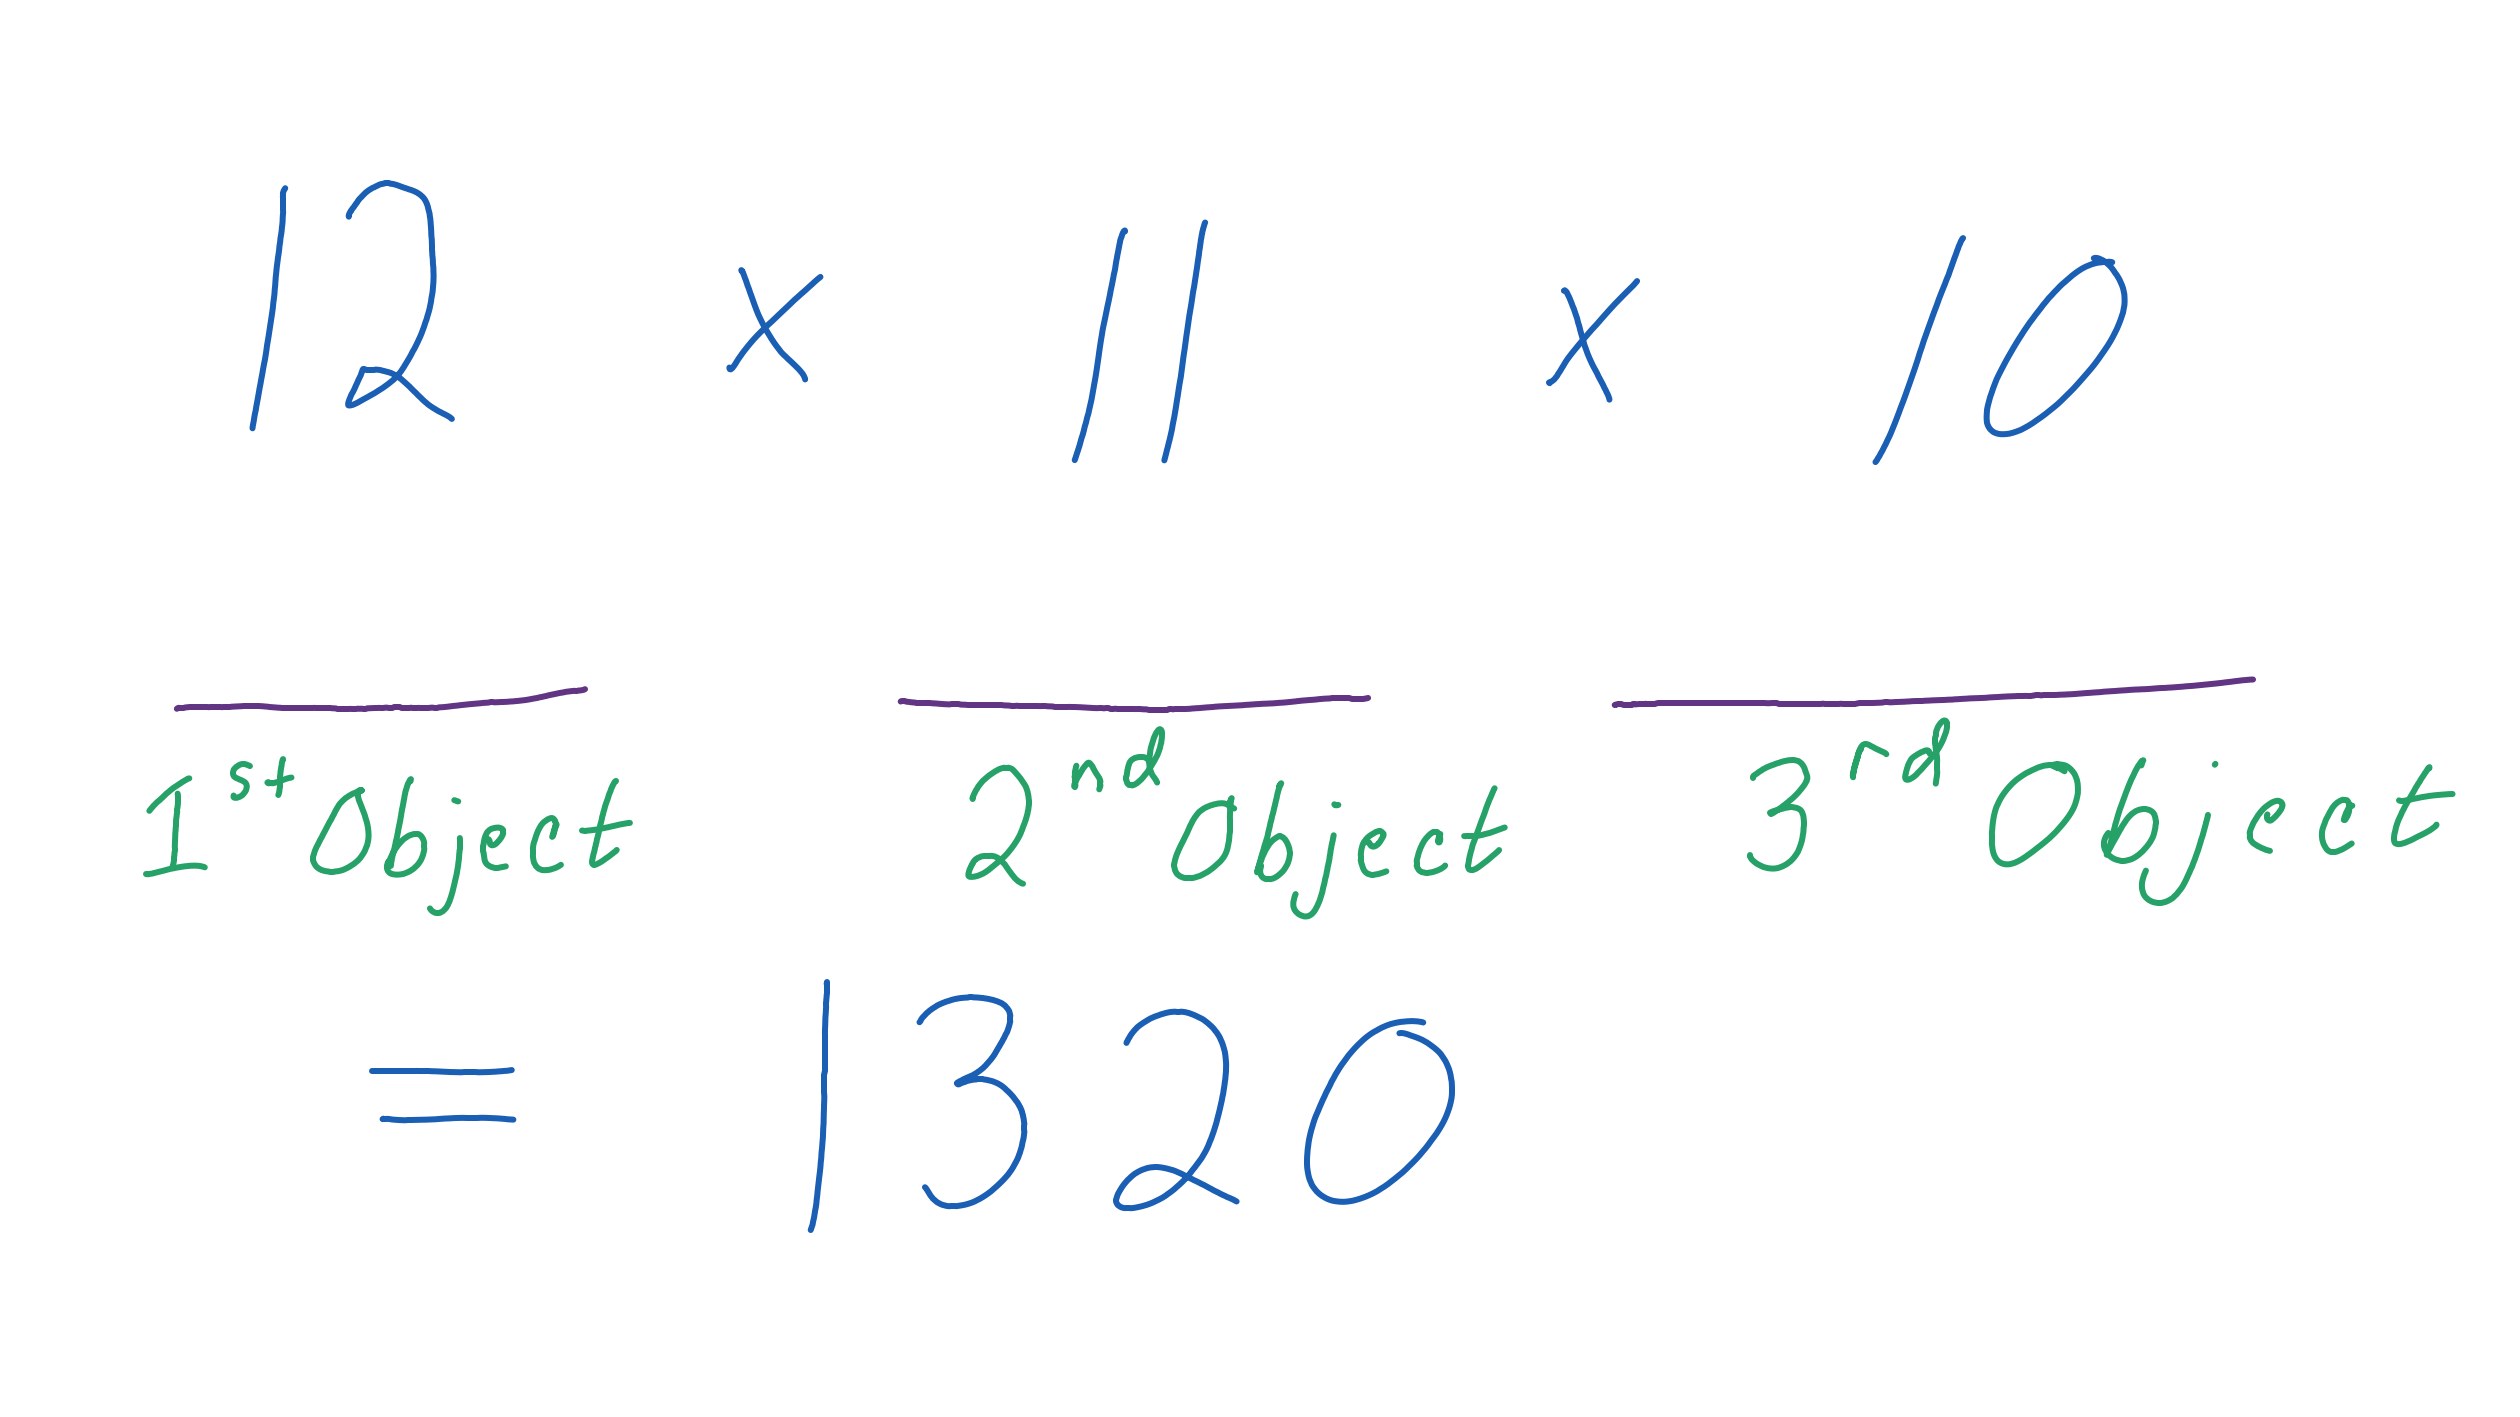 12 x 11 x 10
1st Object 2nd Object 3rd Object
= 1320